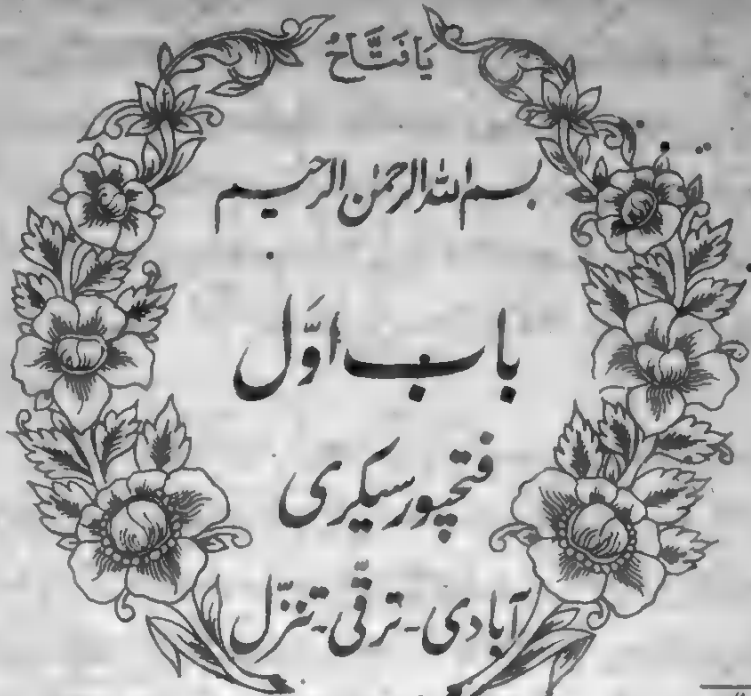 یَا فَتَّاحُ
بسم اللہ الرحمٰن الرحیم
باب اوَّل
فتحپور سیکری
آبادی۔ ترقّی۔ تنزّل